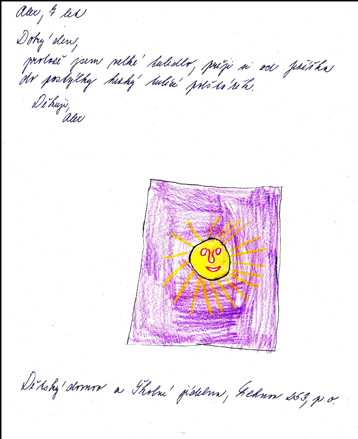 Alex, 7 let
Dobrý den,
protože jsem velké tulidlo, přeji si od Ježíška
do postýlky hezký tulící polštářek.
Děkuji,
Alex
Dětský domov a Školní jídelna, 453, p.o.